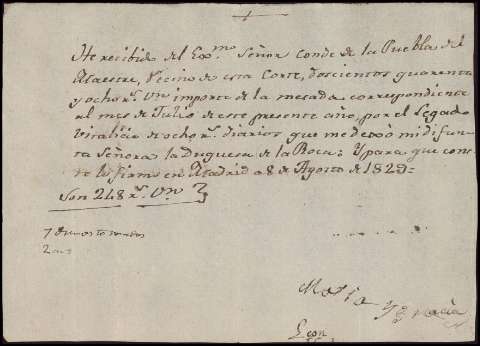 He recibido del Exc.mo Señor Conde de la Puebla del
Maestre, Vecino de esta Corte, doscientos quarenta
y ocho r.s v.n importe de la mesada correspondiente
al mes de Julio de este presente año, por el Legado
vitalicio de ocho r.s diarios que me dexó mi difun
ta Señora la Duquesa de la Roca: Y para que cons
te lo firmo en Madrid a 8 de Agosto de 1829=
Son 248 r.s v.n
Maria Ygnacia
Leon